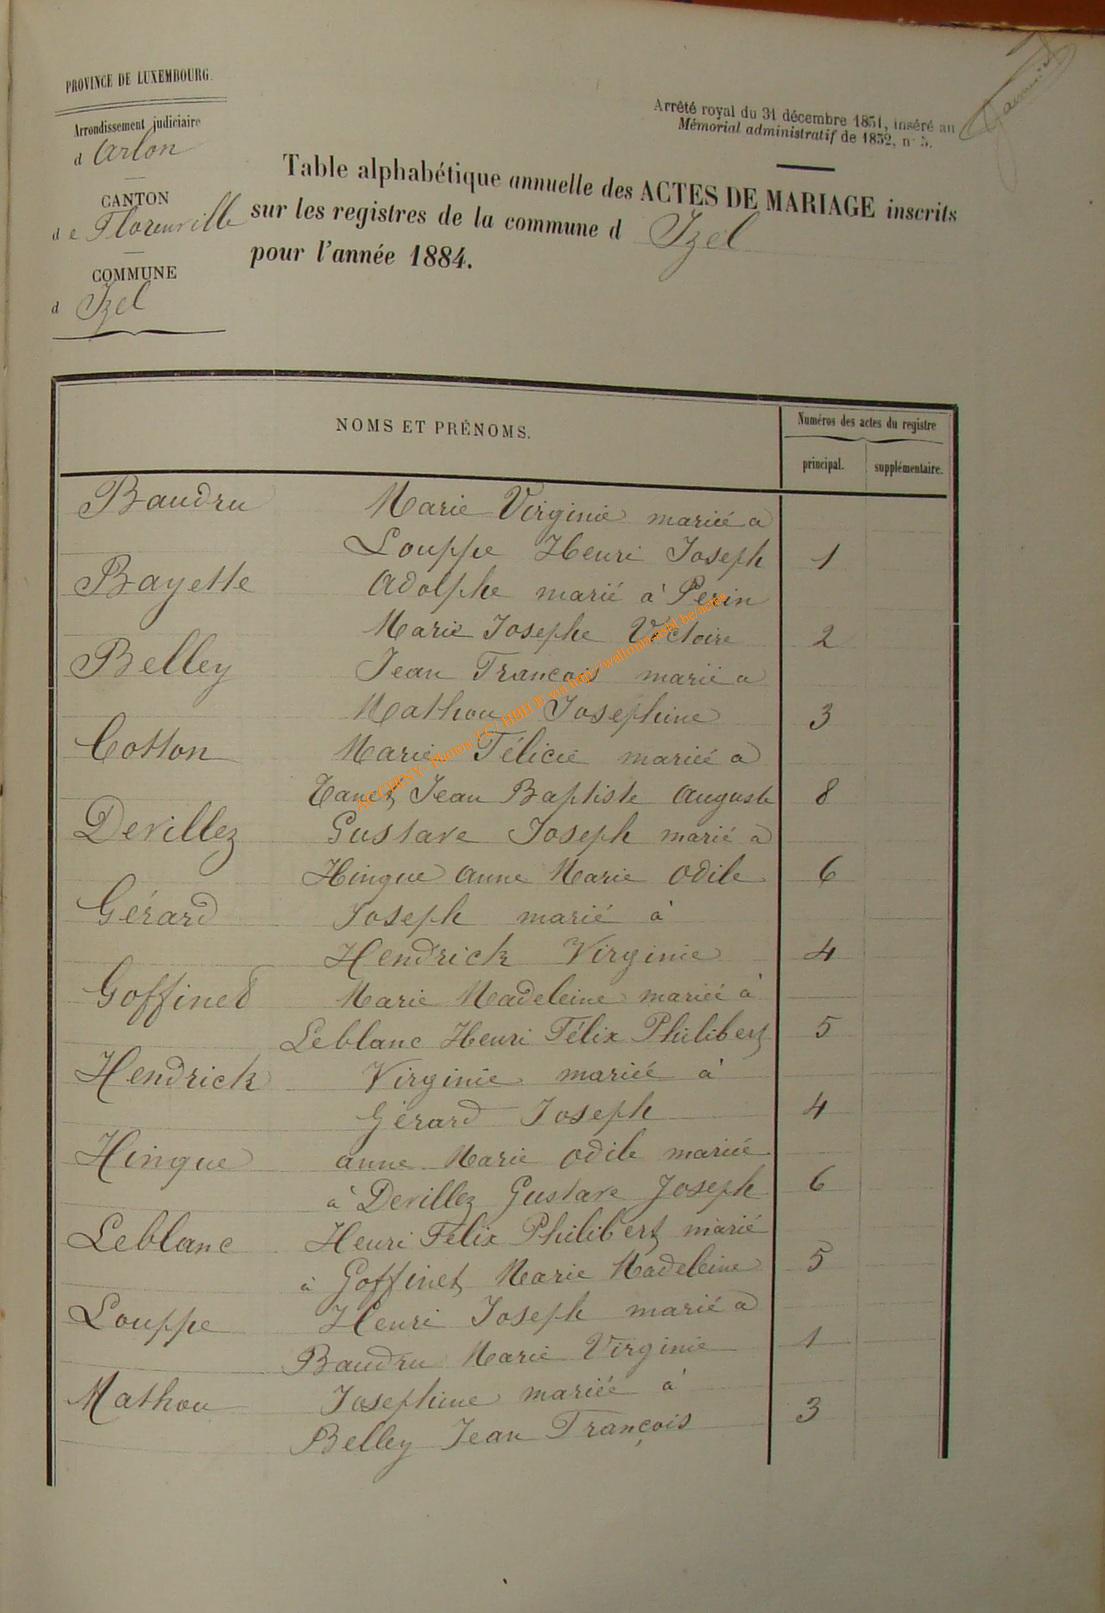 PROVINCE DE LUXEMBOURG.
Arrondissement judiciaire
d Arlon
CANTON
d e Florenville
COMMUNE
d Izel
Arrêté royal du 31 décembre 1851, inséré au
Mémorial administratif de 1852, n° 5.
Table alphabétique annuelle des ACTES DE MARIAGE inscrits
sur les registres de la commune d Izel
pour l'année 1884.
NOMS ET PRÉNOMS.
Numéros des actes du registre
principal. supplémentaire.
Baudru Marie Virginie mariée a
Louppe Henri Joseph 1
Bayette Adolphe marié à Perin
Marie Josephe Victoire 2
Belley Jean François marié a
Mathou Josephine 3
Cotton Marie Félicie mariée a
Jean Baptiste Auguste 8
Devillez Gustave Joseph marié a
Hingue Anne Marie Odile 6
Gérard Joseph marié à
Hendrick Virginie 4
Goffinet Marie Madeleine mariée à
Leblanc Henri Félix Philibert 5
Hendrick Virginie mariée à
Gérard Joseph 4
Hingue Anne Marie Odile mariée
à Devillez Gustave Joseph 6
Leblanc Henri Félix Philibert marié
à Goffinet Marie Madeleine 5
Louppe Henri Joseph marié a
Baudru Marie Virginie 1
Mathou Josephine mariée à
Belley Jean François 3